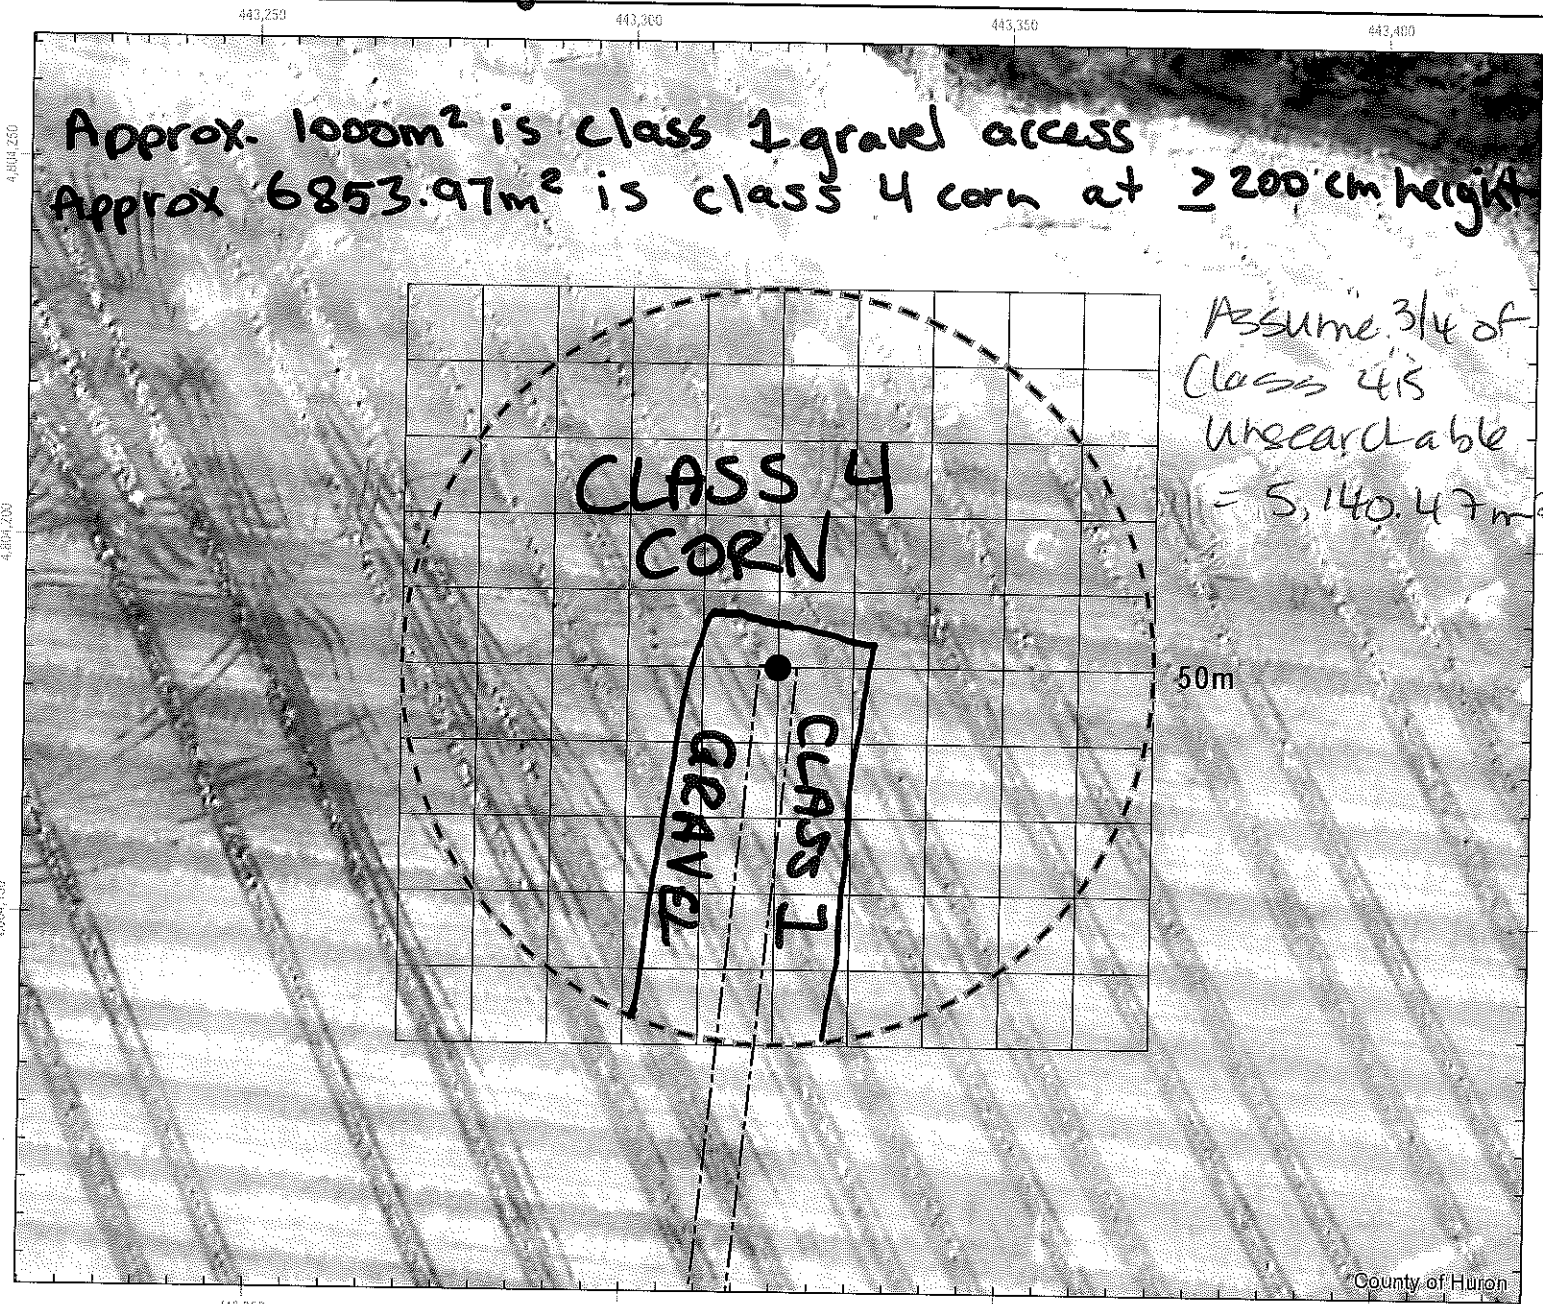 443,250
443,300
443,350
443,400
4,804,250
Approx. 1000m² is class 1 gravel access
Approx 6853.97m² is class 4 corn at ≥200 cm height
Assume 3/4 of
Class 4 is
Unsearchable
= 5,140.47m²
4,804,200
CLASS 4
CORN
50m
CLASS 1
GRAVEL
County of Huron